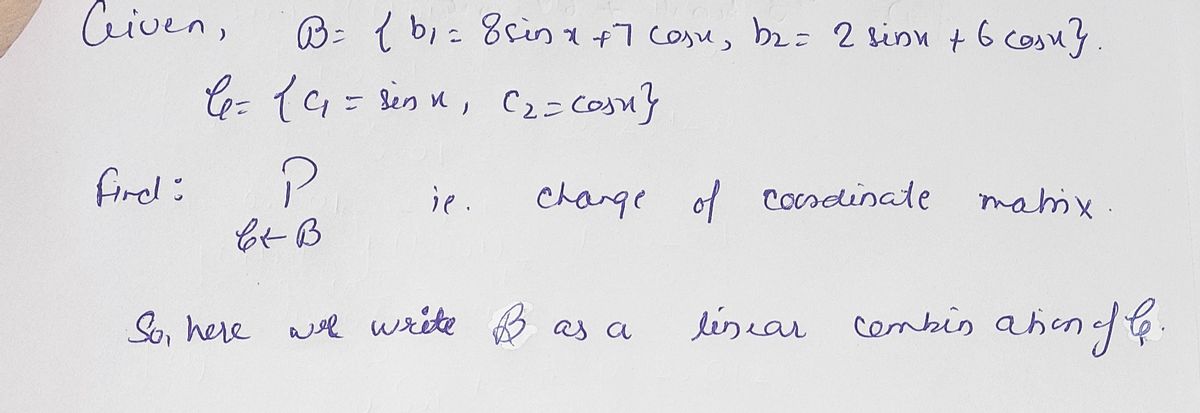 Given, B = { b₁ = 8 sin x + 7 cos x, b₂ = 2 sin x + 6 cos x}.
C = { C₁ = sin x, C₂ = cos x}
find : P ie. change of coordinate matrix.
C ← B
So, here we write B as a linear combination of C.